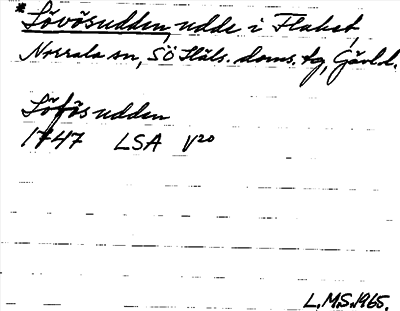 *Lövösudden, udde i Flaket,
Norrala sn, SÖ Häls. doms. tg, Gävl. l.
Löfösudden
1747 LSA V20
L.M.S. 1965.